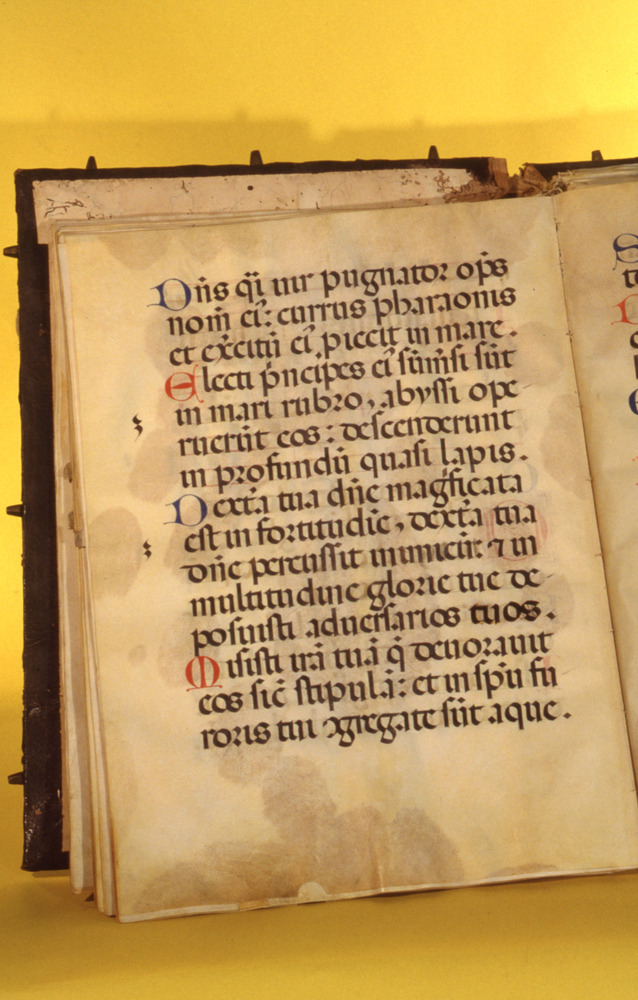 Dn̄s qͥ uir pugnator op̄s
nom̄ eiꝰ: currus pharaonis
et ex̄citū eiꝰ piecit in mare.
Electi pͥncipes eiꝰ sūm̄si sūt
in mari rubro, abyssi ope
ruerūt eos: descenderunt
in profundū quasi lapis.
Dext̄a tua dn̄e maḡficata
est in fortitudīe, dext̄a tua
dn̄e percussit inimicū: ⁊ in
multitudine glorie tue de
posuisti aduersarios tuos.
Misisti irā tuā q̄ deuorauit
eos sic̄ stipulā: et in sp̄u fu
roris tui ꝯgregate sūt aque.